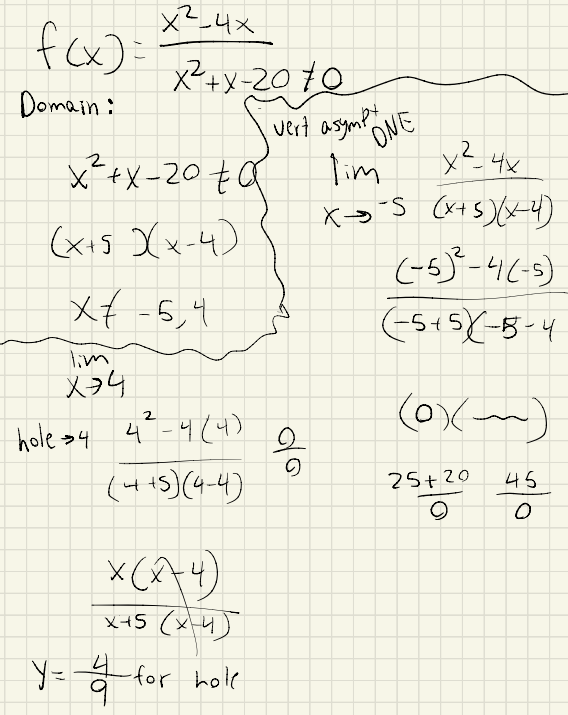 f(x) = x²-4x / x²+x-20 ≠ 0
Domain:
x²+x-20 ≠ 0
(x+5)(x-4)
x ≠ -5, 4
vert asympt DNE
lim x→-5 x²-4x / (x+5)(x-4)
(-5)²-4(-5) / (-5+5)(-5-4
(0)(~~)
25+20 / 0 45 / 0
lim x→4
hole→4 4²-4(4) / (4+5)(4-4) 0/0
x(x-4) / x+5 (x-4)
y = 4/9 for hole